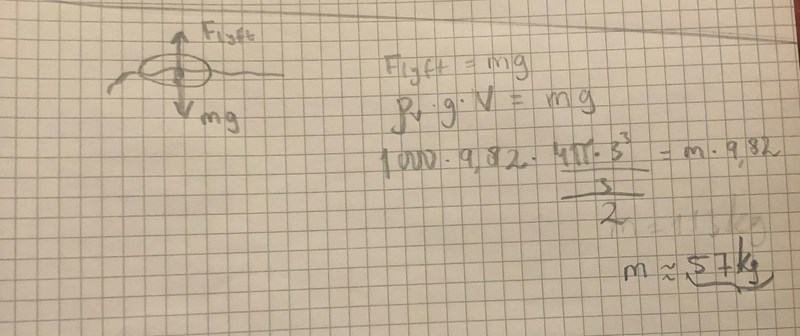 Flyft
mg
Flyft = mg
ρv · g · V = mg
1000 · 9,82 · 4π · 3³ / 3 / 2 = m · 9,82
m ≈ 57 kg